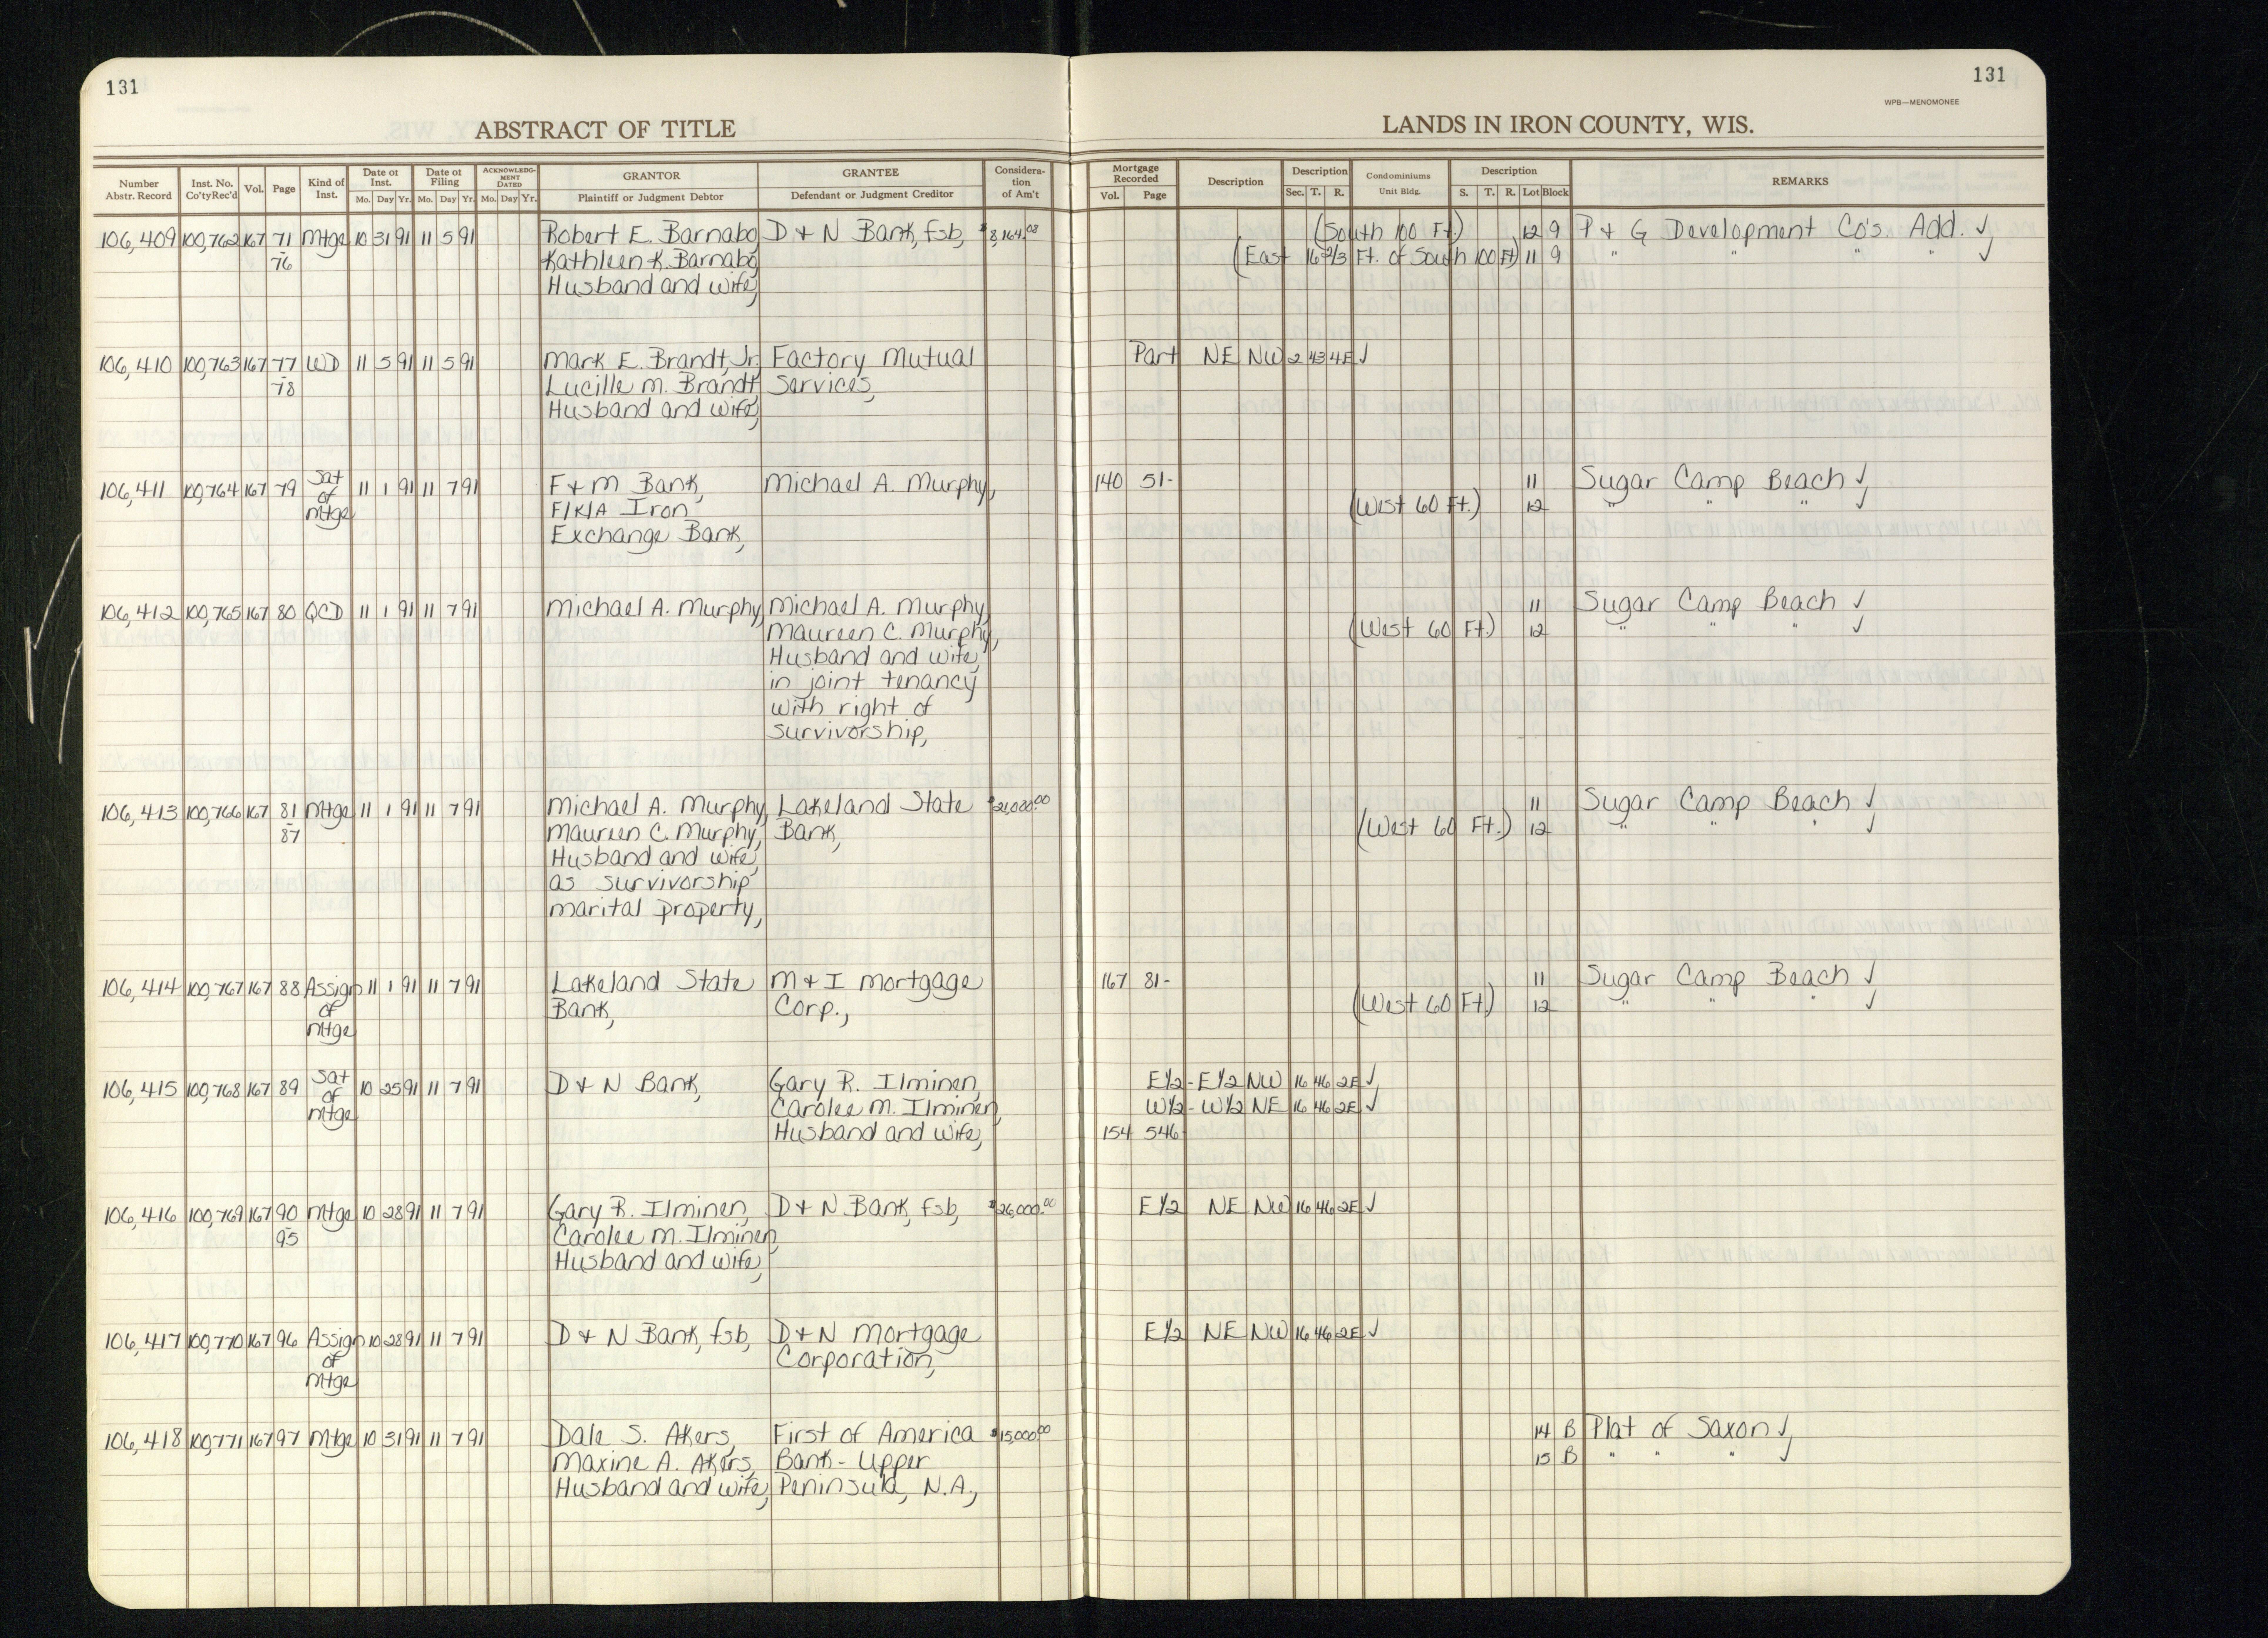 131
131
WPB—MENOMONEE
ABSTRACT OF TITLE
LANDS IN IRON COUNTY, WIS.
Number Abstr. Record | Inst. No. Co'ty Rec'd | Vol. | Page | Kind of Inst. | Date of Inst. Mo. Day Yr. | Date of Filing Mo. Day Yr. | ACKNOWLEDGMENT DATED Mo. Day Yr. | GRANTOR Plaintiff or Judgment Debtor | GRANTEE Defendant or Judgment Creditor | Consideration of Am't | Mortgage Recorded Vol. Page | Description | Description Sec. T. R. | Condominiums Unit Bldg. | Description S. T. R. Lot Block | REMARKS
106,409 100,762 167 71 Mtge 10 31 91 11 5 91 Robert E. Barnabo, D & N Bank, fsb, $8,164.08 (South 100 Ft.) 12 9 P & G Development Co's. Add. ✓
- 76 Kathleen K. Barnabo, (East 16 2/3 Ft. of South 100 Ft) 11 9 " " " " ✓
Husband and wife,
106,410 100,763 167 77 WD 11 5 91 11 5 91 Mark E. Brandt, Jr. Factory Mutual Part NE NW 2 43 4E ✓
- 78 Lucille M. Brandt, Services,
Husband and wife,
106,411 100,764 167 79 Sat 11 1 91 11 7 91 F & M Bank, Michael A. Murphy, 140 51- 11 Sugar Camp Beach ✓
of F/K/A Iron (West 60 Ft.) 12 " " " ✓
Mtge Exchange Bank,
106,412 100,765 167 80 QCD 11 1 91 11 7 91 Michael A. Murphy, Michael A. Murphy, 11 Sugar Camp Beach ✓
Maureen C. Murphy, (West 60 Ft.) 12 " " " ✓
Husband and wife,
in joint tenancy
with right of
survivorship,
106,413 100,766 167 81 Mtge 11 1 91 11 7 91 Michael A. Murphy, Lakeland State $21,000.00 11 Sugar Camp Beach ✓
- 87 Maureen C. Murphy, Bank, (West 60 Ft.) 12 " " " ✓
Husband and wife,
as survivorship
marital property,
106,414 100,767 167 88 Assign 11 1 91 11 7 91 Lakeland State M & I Mortgage 167 81- 11 Sugar Camp Beach ✓
of Bank, Corp., (West 60 Ft.) 12 " " " ✓
Mtge
106,415 100,768 167 89 Sat 10 25 91 11 7 91 D & N Bank, Gary R. Ilminen, E1/2 - E1/2 NW 16 46 2E ✓
of Carolee M. Ilminen, W1/2 - W1/2 NE 16 46 2E ✓
Mtge Husband and wife, 154 546
106,416 100,769 167 90 Mtge 10 28 91 11 7 91 Gary R. Ilminen, D & N Bank, fsb, $26,000.00 E1/2 NE NW 16 46 2E ✓
- 95 Carolee M. Ilminen,
Husband and wife,
106,417 100,770 167 96 Assign 10 28 91 11 7 91 D & N Bank, fsb, D & N Mortgage E1/2 NE NW 16 46 2E ✓
of Corporation,
Mtge
106,418 100,771 167 97 Mtge 10 31 91 11 7 91 Dale S. Akers, First of America $15,000.00 14 B Plat of Saxon ✓
Maxine A. Akers, Bank - Upper 15 B " " " ✓
Husband and wife, Peninsula, N.A.,